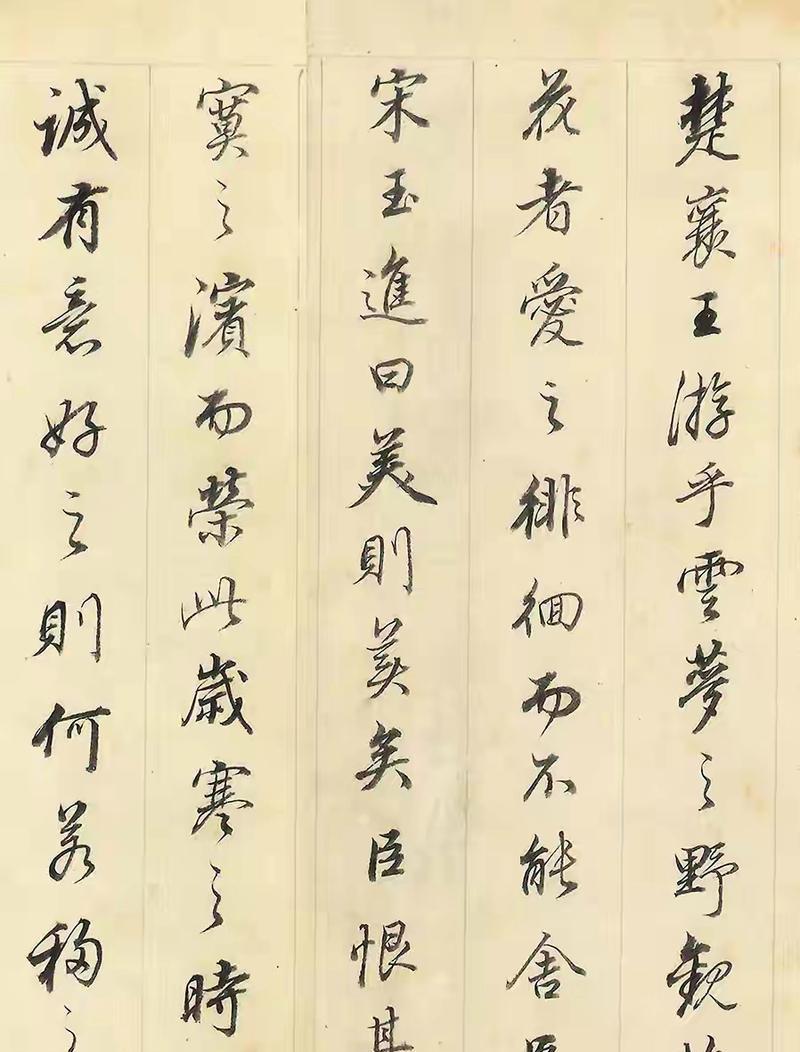 楚襄王游乎雲夢之野觀
花者愛之徘徊而不能舍
宋玉進曰美則美矣臣恨其
寞之濱而榮此歲寒之時
誠有意好之則何若移之